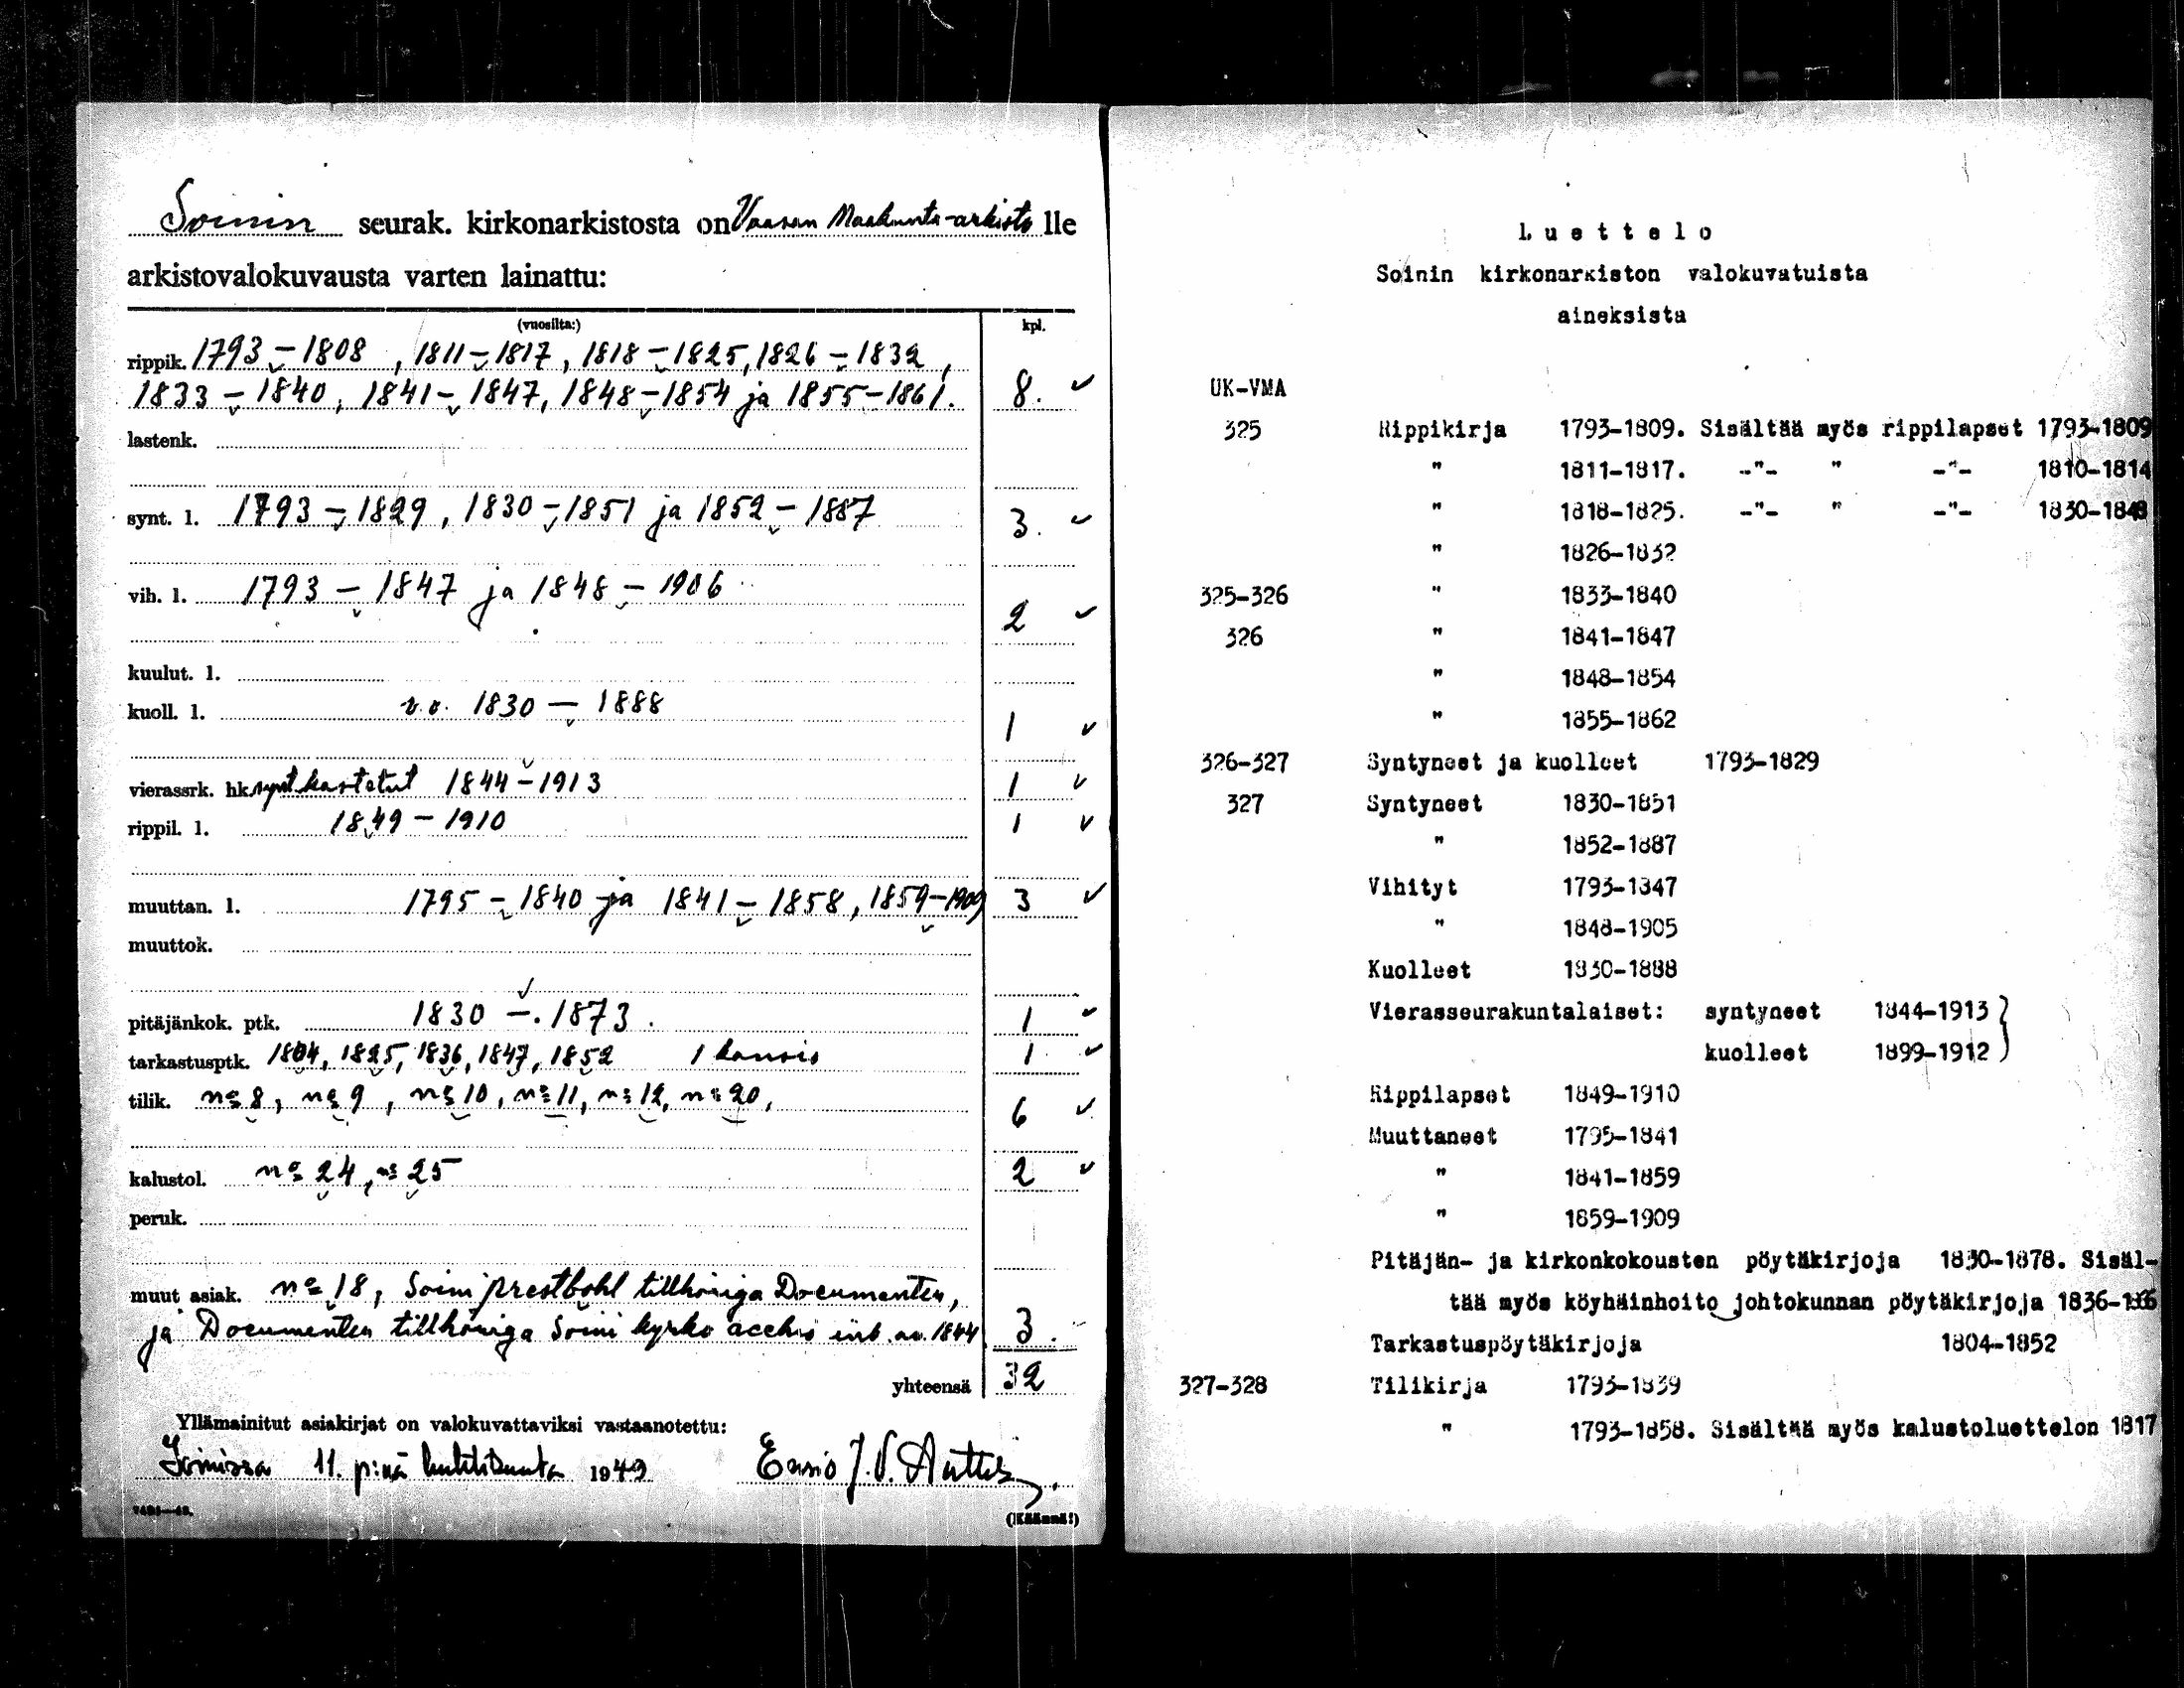 Soinin seurak. kirkonarkistosta on Vaasan Maakunta-arkisto lle
arkistovalokuvausta varten lainattu:
(vuosilta:) kpl.
rippik. 1793–1808, 1811–1817, 1818–1825, 1826–1832,
1833–1840, 1841–1847, 1848–1854 ja 1855–1861. 8.
lastenk.
synt. l. 1793–1829, 1830–1851 ja 1852–1887 3.
vih. l. 1793–1847 ja 1848–1906 2
kuulut. l.
kuoll. l. v.v. 1830–1888 1
vierassrk. hk. synt. kastetut 1844–1913 1
rippil. l. 1849–1910 1
muuttan. l. 1795–1840 ja 1841–1858, 1859–1909 3
muuttok.
pitäjänkok. ptk. 1830–1873. 1
tarkastusptk. 1804, 1825, 1836, 1847, 1852 1 kansio 1
tilik. nº 8, nº 9, nº 10, nº 11, nº 12, nº 20, 6
kalustol. nº 24, nº 25 2
peruk.
muut asiak. nº 18, Soini prestbohl tillhöriga Documenten,
ja Documenten tillhöriga Soini kyrko 1844 3.
yhteensä 32
Yllämainitut asiakirjat on valokuvattaviksi vastaanotettu:
Soinissa 11. p:nä huhtikuuta 1949 Ensio J.V.
(Käännä!)
Luettelo
Soinin kirkonarkiston valokuvatuista
aineksista
UK-VMA
325 Rippikirja 1793-1809. Sisältää myös rippilapset 1793-1809
" 1811-1817. -"- " -"- 1810-1814
" 1818-1825. -"- " -"- 1830-1848
" 1826-1832
325-326 " 1833-1840
326 " 1841-1847
" 1848-1854
" 1855-1862
326-327 Syntyneet ja kuolleet 1793-1829
327 Syntyneet 1830-1851
" 1852-1887
Vihityt 1793-1847
" 1848-1905
Kuolleet 1830-1888
Vierasseurakuntalaiset: syntyneet 1844-1913
kuolleet 1899-1912
Rippilapset 1849-1910
Muuttaneet 1795-1841
" 1841-1859
" 1859-1909
Pitäjän- ja kirkonkokousten pöytäkirjoja 1830-1878. Sisäl-
tää myös köyhäinhoito johtokunnan pöytäkirjoja 1836-
Tarkastuspöytäkirjoja 1804-1852
327-328 Tilikirja 1793-1839
" 1793-1858. Sisältää myös kalustoluettelon 1817